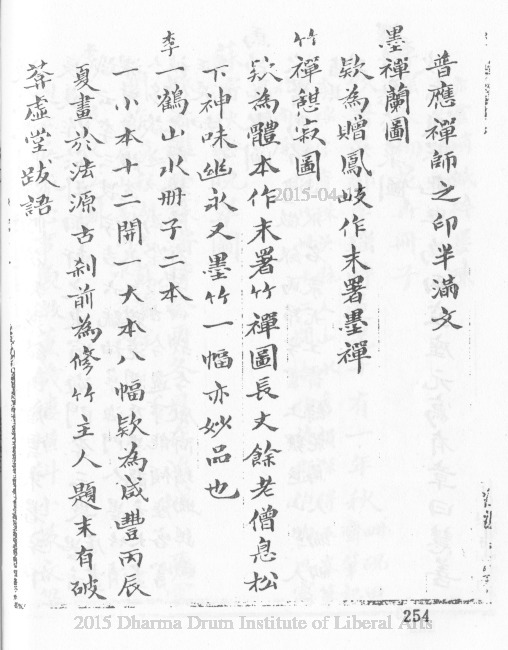 普應禪師之印半滿文
墨禪蘭圖
欵為贈鳳岐作末署墨禪
竹禪憇寂圖
欵為體本作末署竹禪圖長丈餘老僧息松
下神味幽永又墨竹一幅亦妙品也
李一鶴山水冊子二本
一小本十二開一大本八幅欵為咸豐丙辰
夏畫於法源古剎前為修竹主人題末有破
葊虛堂跋語
2015-04
254
2015 Dharma Drum Institute of Liberal Arts